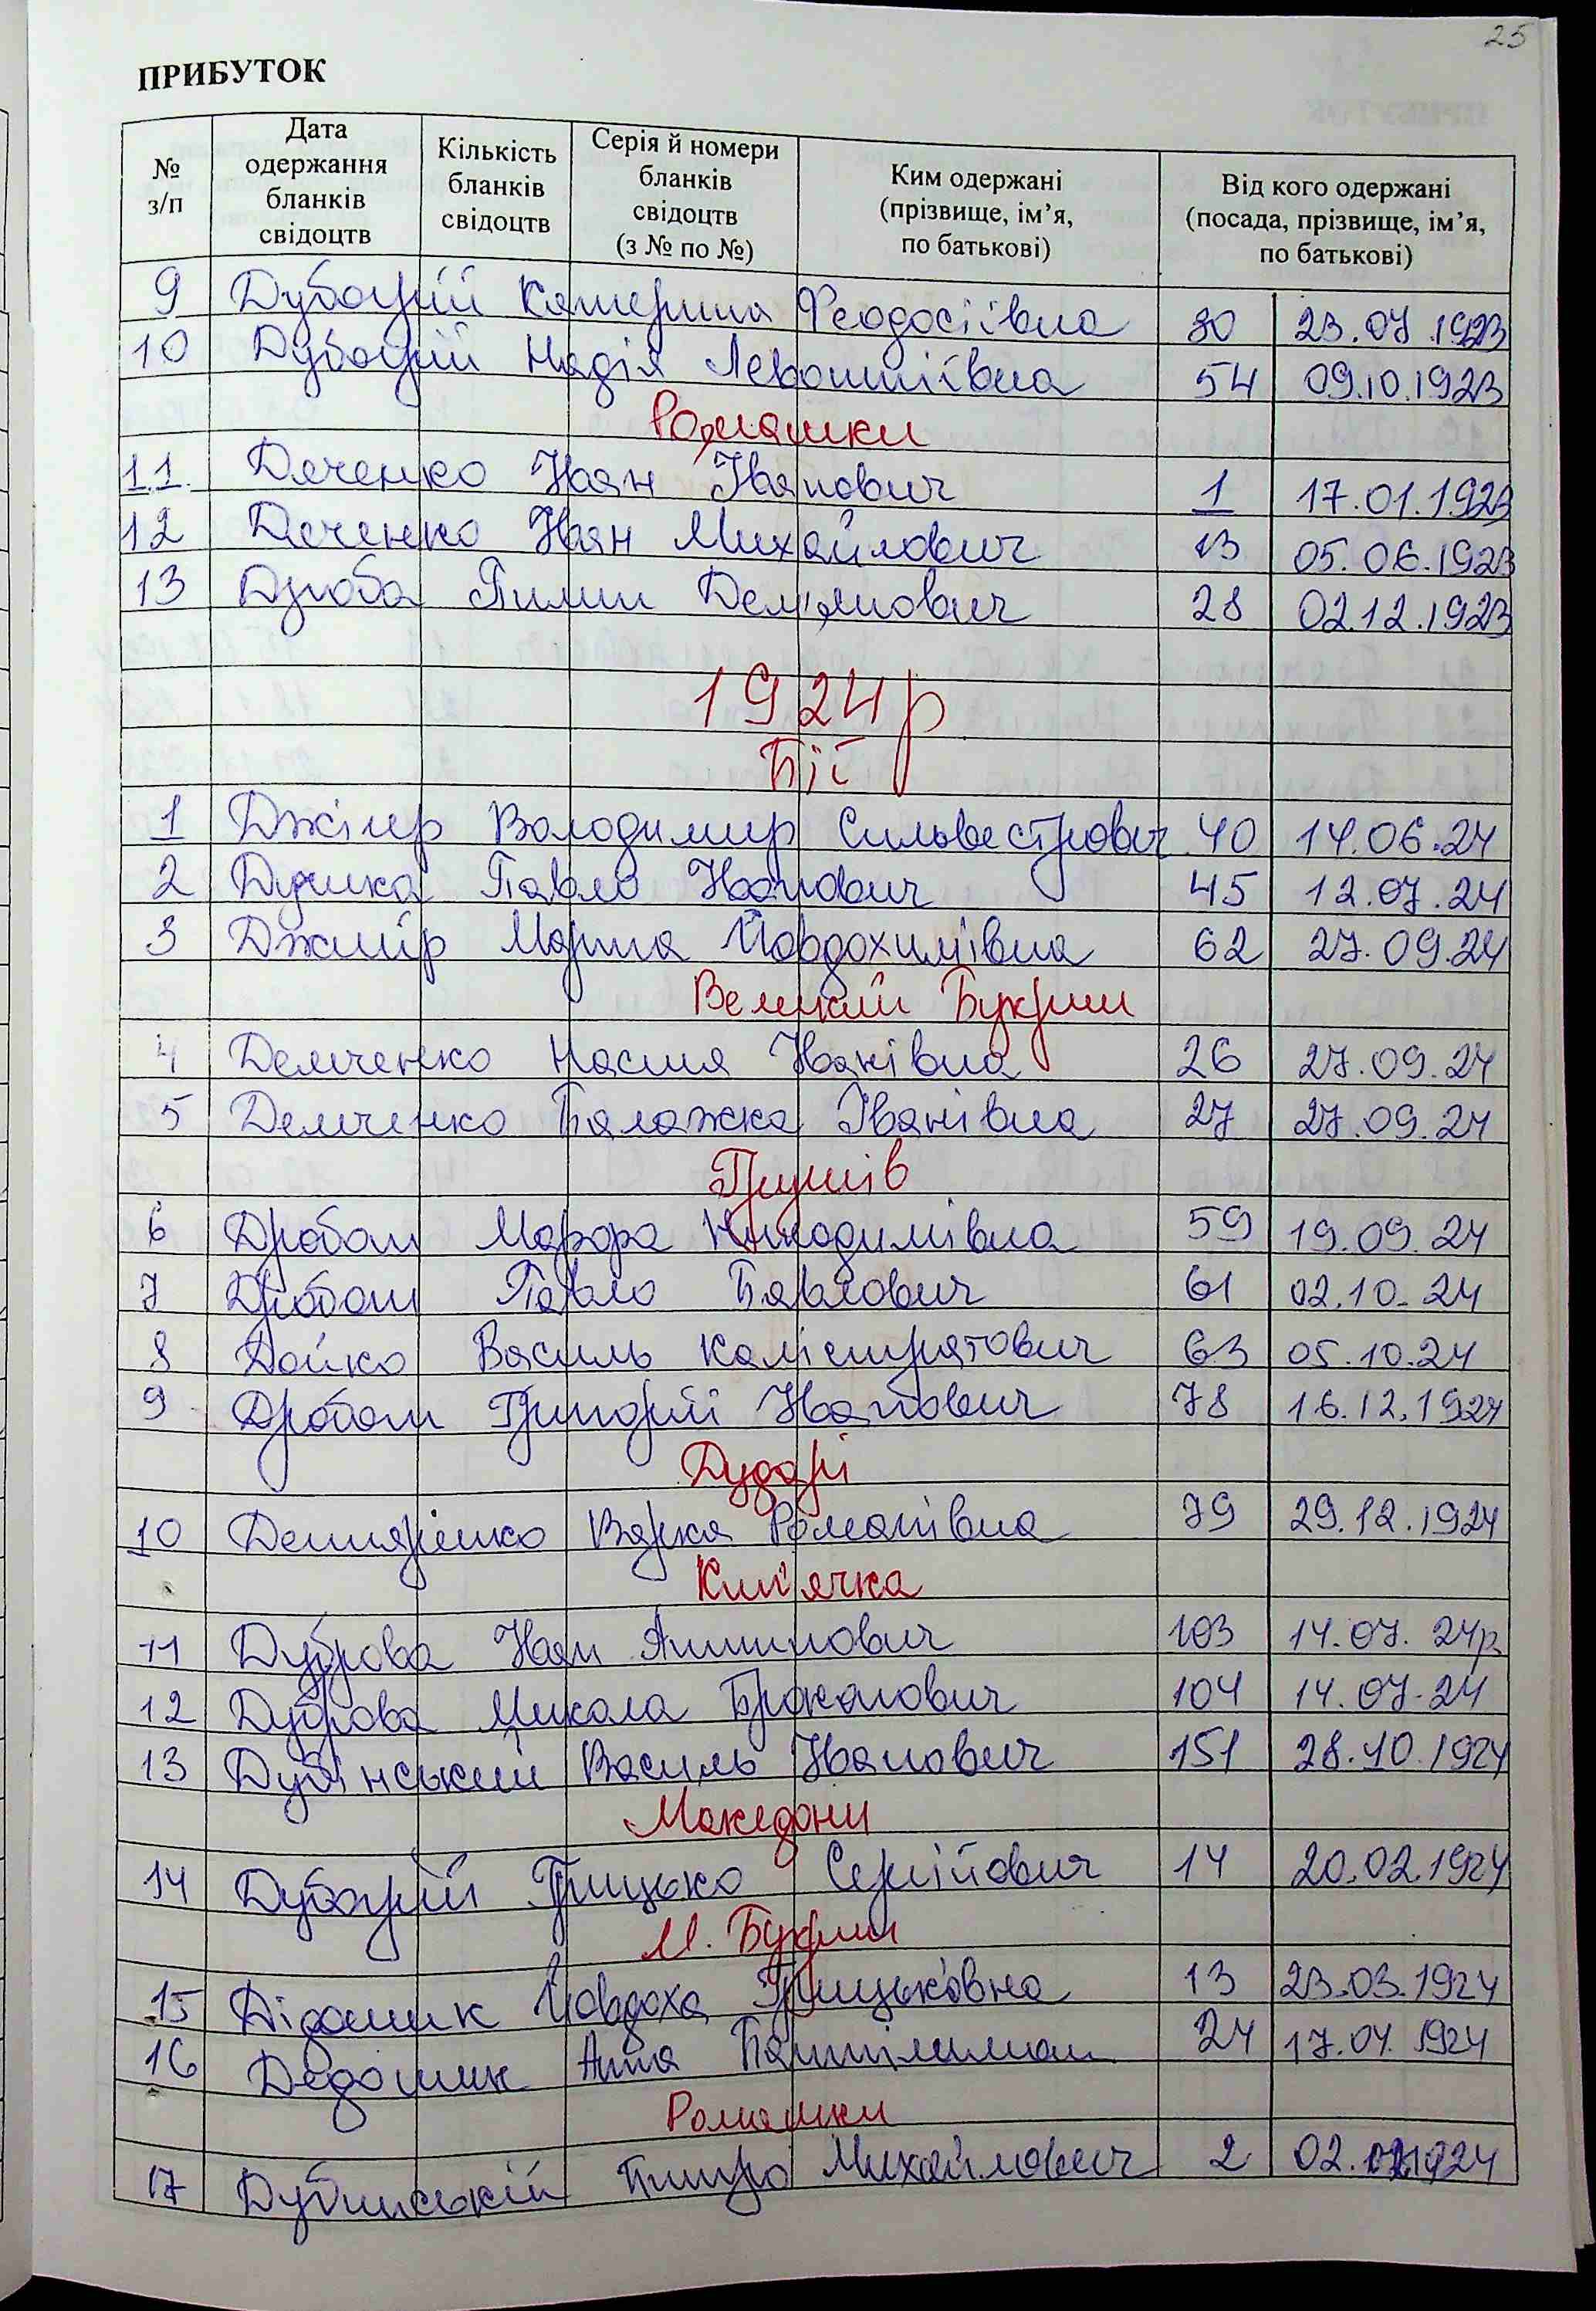 25
ПРИБУТОК
№ з/п
Дата одержання бланків свідоцтв
Кількість бланків свідоцтв
Серія й номери бланків свідоцтв (з № по №)
Ким одержані (прізвище, ім’я, по батькові)
Від кого одержані (посада, прізвище, ім’я, по батькові)
9 Дубогрій Катерина Феодосіївна 80 23.07.1923
10 Дубогрій Надія Левонтіївна 54 09.10.1923
Ромашки
11. Дяченко Іван Іванович 1 17.01.1923
12 Дяченко Іван Михайлович 13 05.06.1923
13 Дзюба Пимин Дем'янович 28 02.12.1923
1924р
Бії
1 Джигир Володимир Сильвестрович 40 14.06.24
2 Павло Іванович 45 12.07.24
3 Джигір Марина Йовдохимівна 62 27.09.24
Великий Букрин
4 Демченко Настя Іванівна 26 27.09.24
5 Демченко Палажка Іванівна 27 27.09.24
Грушів
6 Дробот Марфа Никодимівна 59 19.09.24
7 Дробот Павло Павлович 61 02.10.24
8 Дойко Василь Калістратович 63 05.10.24
9 Дробот Григорій Іванович 78 16.12.1924
Дударі
10 Варка Романівна 79 29.12.1924
Кип'ячка
11 Дуброва Іван Антипович 103 14.07.24р
12 Дуброва Микола Прокопович 104 14.07.24
13 Дубінський Василь Іванович 151 28.10.1924
Македони
14 Дубогрій Грицько Сергійович 14 20.02.1924
М. Букрин
15 Дідошик Йовдоха Грицьківна 13 23.03.1924
16 Дедошик Анна 24 17.04.1924
Ромашки
17 Дубинській Петро Михайлович 2 02.